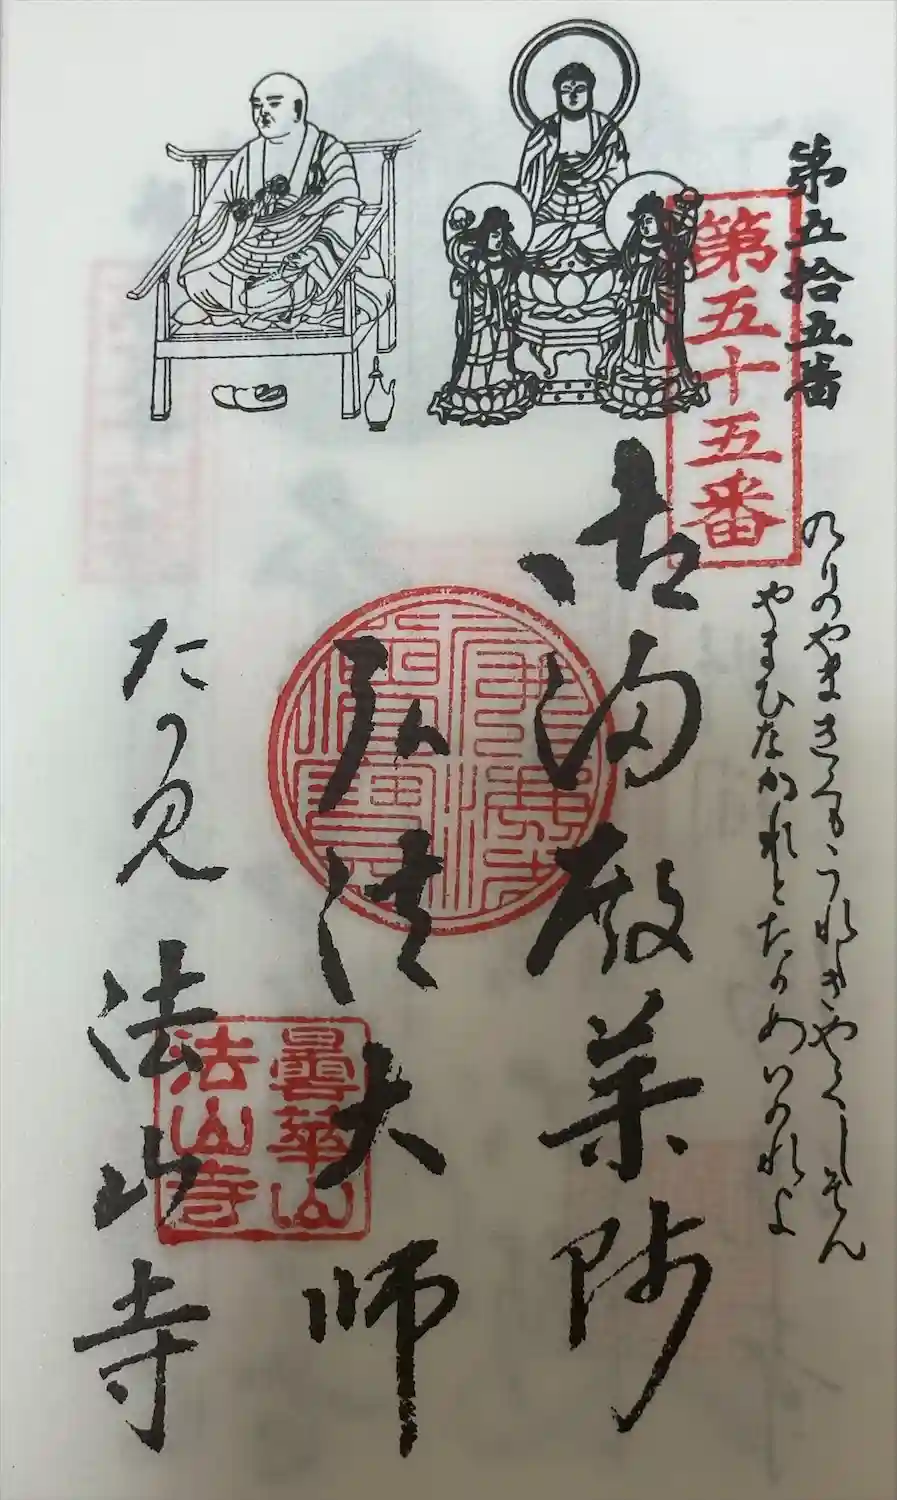 第五拾五番
第五十五番
のりのやまきくもうれしきやくしそん
やまひなかれとたのめいのれよ
御湯殿薬師
弘法大師
法山寺
曇華山
法山寺